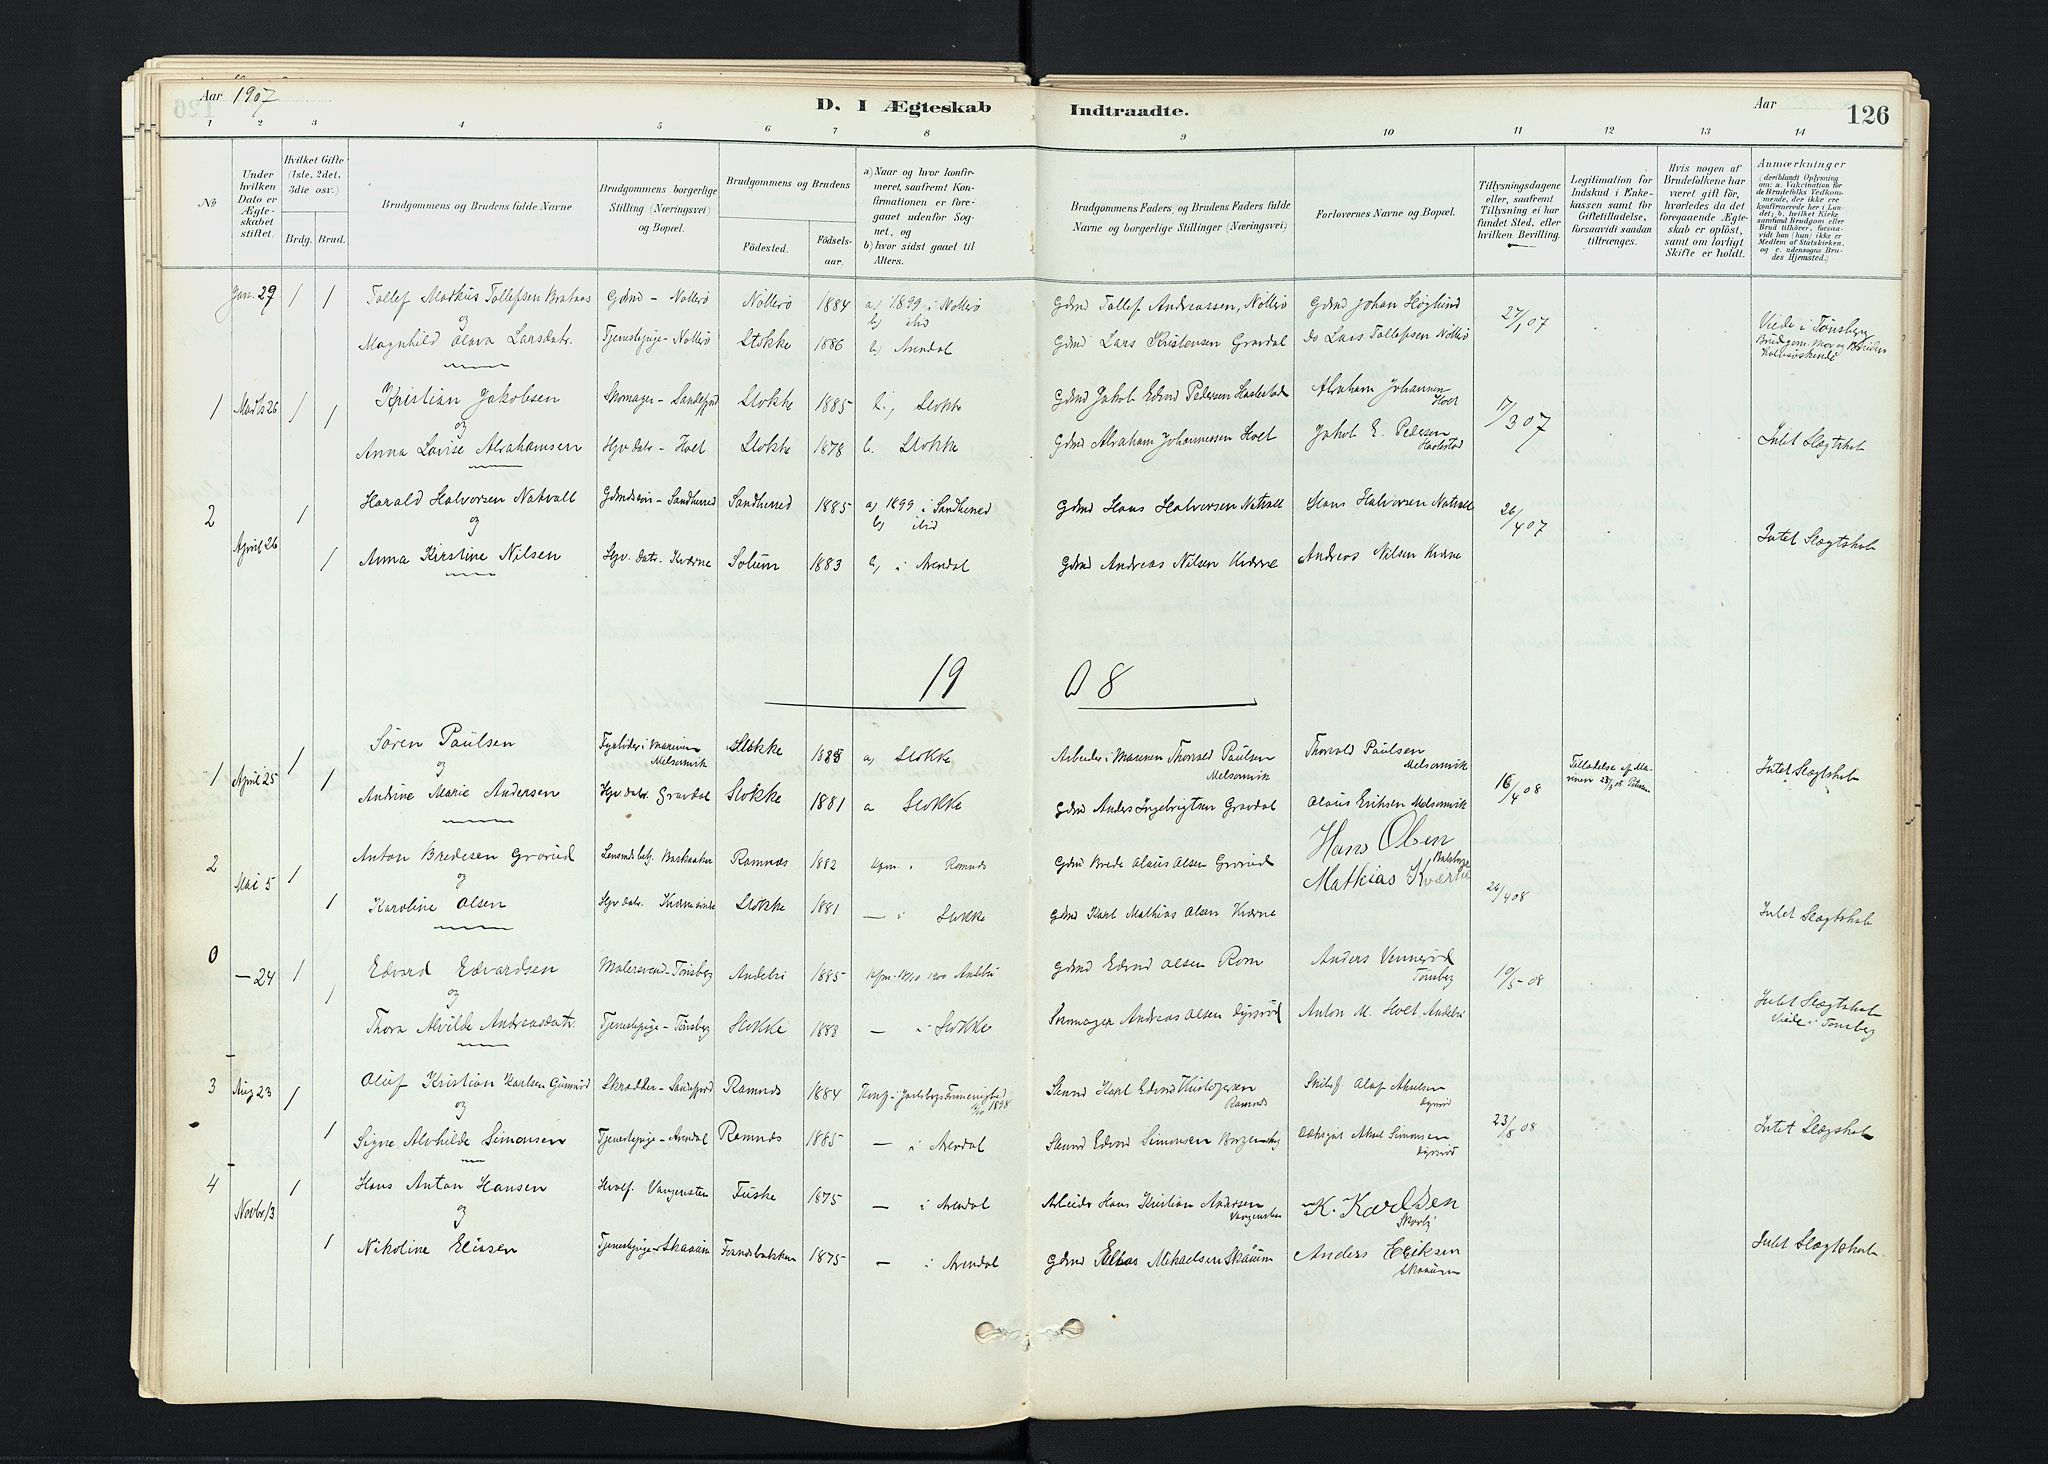 Aar 1907
D. I Ægteskab Indtraadte.
Aar
126
1 2 3 4 5 6 7 8 9 10 11 12 13 14
No
Under hvilken Dato er Ægteskabet stiftet.
Hvilket Gifte (1ste, 2det, 3die osv.)
Brdg. Brud.
Brudgommens og Brudens fulde Navne
Brudgommens borgerlige Stilling (Næringsvei) og Bopæl.
Brudgommens og Brudens
Fødested. Fødselsaar.
a) Naar og hvor konfirmeret, saafremt Konfirmationen er foregaaet udenfor Sognet, og
b) hvor sidst gaaet til Alters.
Brudgommens Faders og Brudens Faders fulde Navne og borgerlige Stillinger (Næringsvei)
Forlovernes Navne og Bopæl.
Tillysningsdagene eller, saafremt Tillysning ei har fundet Sted, efter hvilken Bevilling.
Legitimation for Indskud i Enkekassen samt for Giftetilladelse, forsaavidt saadan tiltrenges.
Hvis nogen af Brudefolkene har været gift før, hvorledes da det foregaaende Ægteskab er opløst, samt om lovligt Skifte er holdt.
Anmærkninger (deriblandt Oplysning om: a. Vakcination for de Brudefolks Vedkommende, der ikke ere konfirmerede her i Landet; b. hvilket Kirkesamfund Brudgom eller Brud tilhører, forsaavidt han (hun) ikke er Medlem af Statskirken, og c. udensogns Brudes Hjemsted.)
Jan. 29 1 1 Tollef Markus Tollefsen Gdmd - Nøtterø Nøtterø 1884 a) 1899 i Nøtterø b) ibid Gdmd Tollef Andreassen, Nøtterø Gdmd Johan Høglund 27/1 07 Viede i Tønsberg
og
Magnhild Olava Larsdatr. Tjenestepige - Nøtterø Stokke 1886 b) Arendal Gdmd Lars Kristensen Gravdal do Lars Tollefsen Nøtterø
1 Marts 26 1 1 Kristian Jakobsen Skomager - Sandefjord Stokke 1885 b, Stokke Gdmd Jakob Edvard Pedersen Haslestad Abraham Johannesen Holt 17/3 07
og
Anna Lovise Abrahamsen Hjv. datr - Holt Stokke 1878 b. Stokke Gdmd Abraham Johannessen Holt Jakob E. Pedersen Haslestad Intet Slægtskab
2 April 26 1 Harald Halvorsen Natvall Gdmdssøn - Sandherred Sandherred 1885 a) 1899 i Sandherred b) ibid Gdmd Hans Halvorsen Natvall Hans Halvorsen Natvall 26/4 07
og
1 Anna Kirstine Nilsen Hjv. datr. Kværne Solum 1883 b, i Arendal Gdmd Andreas Nilsen Kværne Andreas Nilsen Kværne Intet Slægtskab
1908
1 April 25 1 Søren Paulsen Fyrbøder i Marinen Melsomvik Stokke 1883 a) Stokke Arbeider i Marinen Thorvald Paulsen Melsomvik Thorvald Paulsen Melsomvik 16/4 08 Tilladelse af Marinen Intet Slægtskab
og
1 Andrine Marie Andersen Hjv. datr. Gravdal Stokke 1881 a Stokke Gdmd Anders Ingebrigtsen Gravdal Olaus Eriksen Melsomvik
2 Mai 5 1 Anton Bredesen Grorud Lensmdsbetj. Barkaaker Ramnes 1882 Kfm. i Ramnes Gdmd Brede Olaus Olsen Grorud Hans Olsen 26/4 08
og
1 Karoline Olsen Hjv. datr. Stokke 1881 — i Stokke Gdmd Karl Mathias Olsen Kværne Mathias Kværne Intet Slægtskab
0 — 24 1 Edvard Edvardsen Malersvend - Tønsberg Andebu 1885 Kfm. 14/10 1900 Andebu Gdmd Edvard Olsen Rom Anders Vennerød Tønsberg 10/5 - 08
og
1 Thora Alvilde Andreasdatr. Tjenestepige - Tønsberg Stokke 1888 — i Stokke Skomager Andreas Olsen Dyrsrød Anton M. Holt Andebu Intet Slægtskab Viede i Tønsberg
3 Aug 23 1 Oluf Kristian Karlsen Skrædder - Sandefjord Ramnes 1884 Ramnes 23/8 08
og
1 Signe Alvhilde Simonsen Tjenestepige - Arendal Ramnes 1885 — i Arendal Edvard Simonsen Aksel Simonsen Dyrsrød Intet Slægtskab
4 Novbr. 13 1 Hans Anton Hansen Vangensten Fuske 1875 — i Arendal Arbeider Hans Kristian Andersen Vangensten K. Karlsen
og
1 Nikoline Eliasen Tjenestepige - Skaaum 1875 — i Arendal Gdmd Elias Mikaelsen Skaaum Anders Eriksen Skaaum Intet Slægtskab